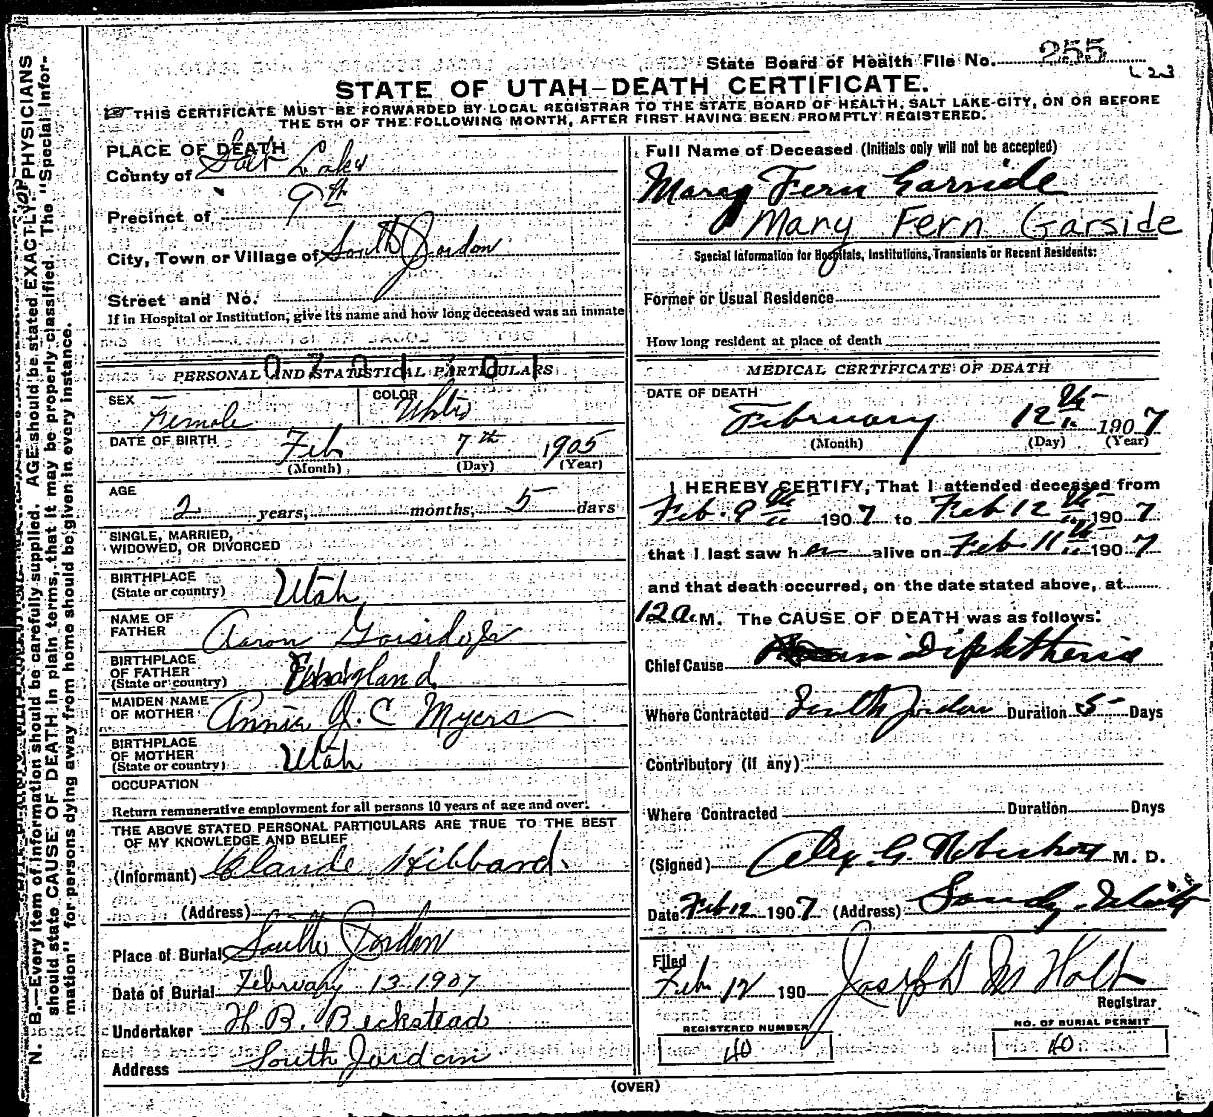 State Board of Health File No. 255
STATE OF UTAH–DEATH CERTIFICATE.
THIS CERTIFICATE MUST BE FORWARDED BY LOCAL REGISTRAR TO THE STATE BOARD OF HEALTH, SALT LAKE CITY, ON OR BEFORE
THE 5TH OF THE FOLLOWING MONTH, AFTER FIRST HAVING BEEN PROMPTLY REGISTERED.
N. B.—Every item of information should be carefully supplied. AGE should be stated EXACTLY. PHYSICIANS
should state CAUSE OF DEATH in plain terms, that it may be properly classified. The "Special Infor-
mation" for persons dying away from home should be given in every instance.
PLACE OF DEATH
County of Salt Lake
Precinct of 9th
City, Town or Village of South Jordon
Street and No.
If in Hospital or Institution, give its name and how long deceased was an inmate
PERSONAL AND STATISTICAL PARTICULARS
SEX Female COLOR White
DATE OF BIRTH Feb 7th 1905
(Month) (Day) (Year)
AGE
2 years, months, 5 days
SINGLE, MARRIED,
WIDOWED, OR DIVORCED
BIRTHPLACE
(State or country) Utah
NAME OF
FATHER Aaron Garside Jr
BIRTHPLACE
OF FATHER
(State or country) England
MAIDEN NAME
OF MOTHER Annie J. C Myers
BIRTHPLACE
OF MOTHER
(State or country) Utah
OCCUPATION
Return remunerative employment for all persons 10 years of age and over.
THE ABOVE STATED PERSONAL PARTICULARS ARE TRUE TO THE BEST
OF MY KNOWLEDGE AND BELIEF
(Informant) Claude Hibbard.
(Address)
Place of Burial South Jordan
Date of Burial February 13 1907
Undertaker H. B. Beckstead
Address South Jordan
Full Name of Deceased (Initials only will not be accepted)
Mary Fern Garside
Mary Fern Garside
Special Information for Hospitals, Institutions, Transients or Recent Residents:
Former or Usual Residence
How long resident at place of death
MEDICAL CERTIFICATE OF DEATH
DATE OF DEATH
February 12th 1907
(Month) (Day) (Year)
I HEREBY CERTIFY, That I attended deceased from
Feb. 9th 1907 to Feb 12th 1907
that I last saw her alive on Feb. 11th 1907
and that death occurred, on the date stated above, at
12 a. M. The CAUSE OF DEATH was as follows:
Chief Cause Diphtheria
Where Contracted South Jordan Duration 5 Days
Contributory (if any)
Where Contracted Duration Days
(Signed) Alex. G. M. D.
Date Feb 12 1907 (Address) Sandy, Utah
Filed
Feb. 12 190 Joseph M Holt
Registrar
REGISTERED NUMBER
40
NO. OF BURIAL PERMIT
40
(OVER)